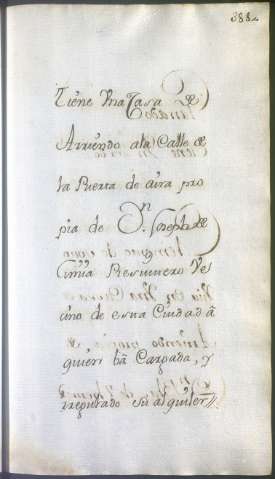 388
Tiene Una Casa de
Arriendo ala Calle de
la Puerta de aira pro
pia de Dn. Joseph de
vecino de esta Ciudad â
quien bâ Cargada, y
reputado su alquiler